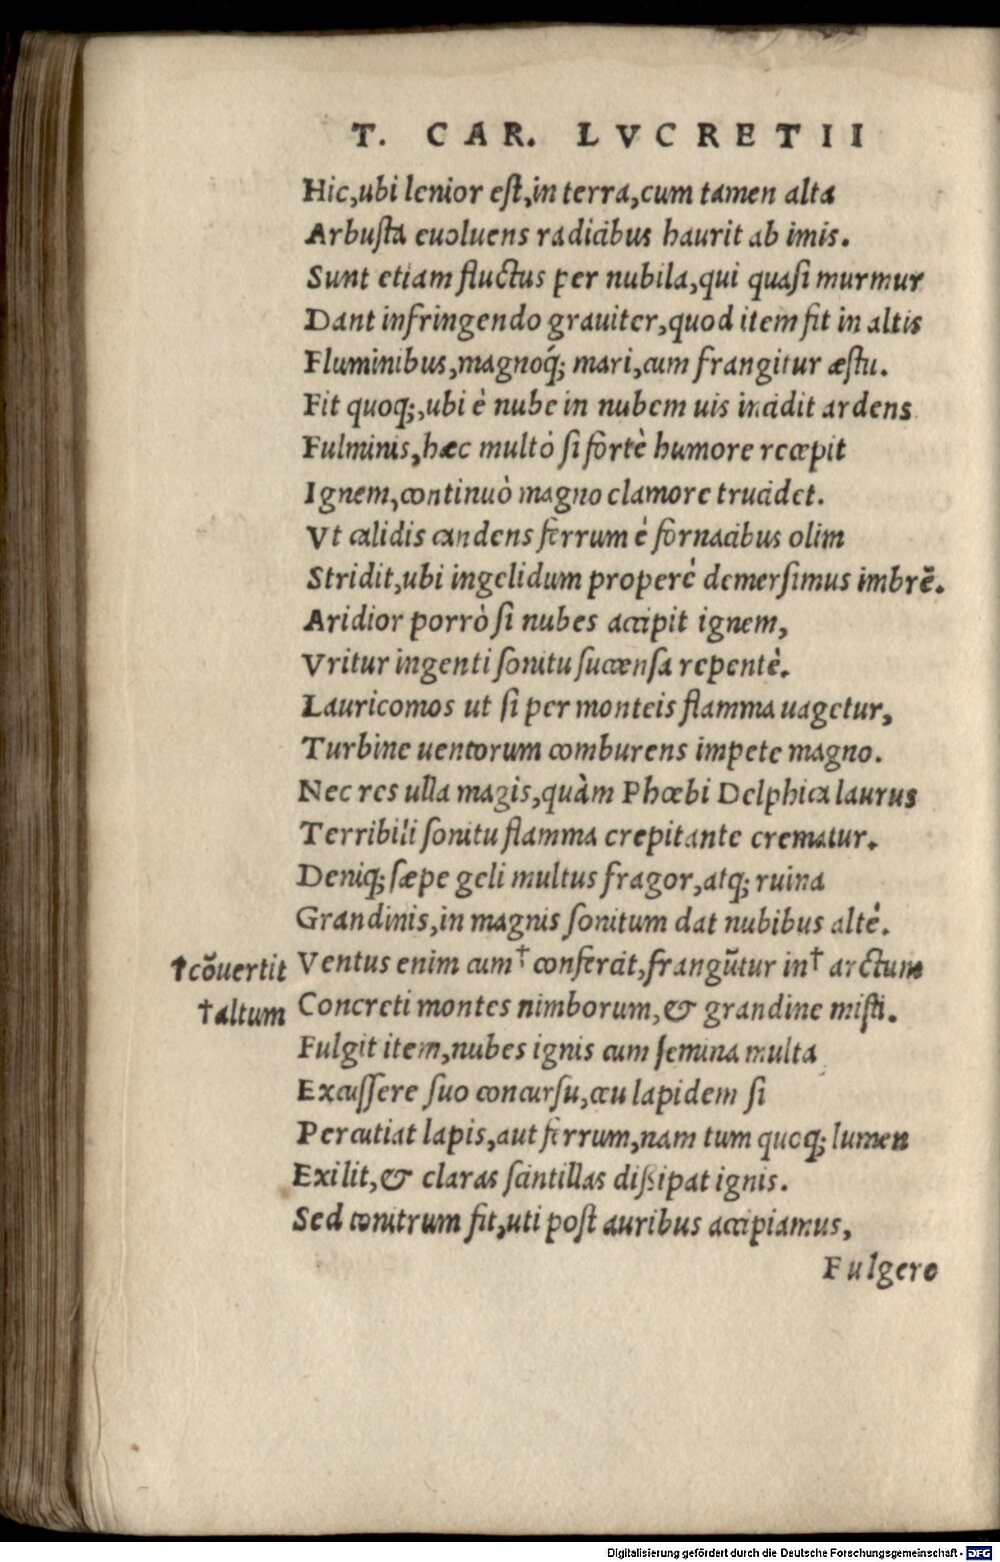 T. CAR. LVCRETII
Hic,ubi lenior eſt,in terra,cum tamen alta
Arbuſta euoluens radicibus haurit ab imis.
Sunt etiam fluctus per nubila,qui quaſi murmur
Dant infringendo grauiter,quod item fit in altis
Fluminibus,magnoq́; mari,cum frangitur æſtu.
Fit quoq;,ubi è nube in nubem uis incidit ardens
Fulminis,hæc multò ſi fortè humore recepit
Ignem,continuò magno clamore trucidet.
Vt calidis candens ferrum è fornacibus olim
Stridit,ubi in gelidum properè demerſimus imbrē.
Aridior porrò ſi nubes accipit ignem,
Vritur ingenti ſonitu ſuccenſa repentè.
Lauricomos ut ſi per monteis flamma uagetur,
Turbine uentorum comburens impete magno.
Nec res ulla magis,quàm Phœbi Delphica laurus
Terribili ſonitu flamma crepitante crematur.
Deniq; ſæpe geli multus fragor,atq; ruina
Grandinis,in magnis ſonitum dat nubibus altè.
†cōuertit Ventus enim cum† confercit,frangūtur in† arctum
†altum Concreti montes nimborum,& grandine miſti.
Fulgit item,nubes ignis cum ſemina multa
Excuſſere ſuo concurſu,ceu lapidem ſi
Percutiat lapis,aut ferrum,nam tum quoq; lumen
Exilit,& claras ſcintillas diſsipat ignis.
Sed tonitrum fit,uti poſt auribus accipiamus,
Fulgere
Digitalisierung gefördert durch die Deutsche Forschungsgemeinschaft - DFG